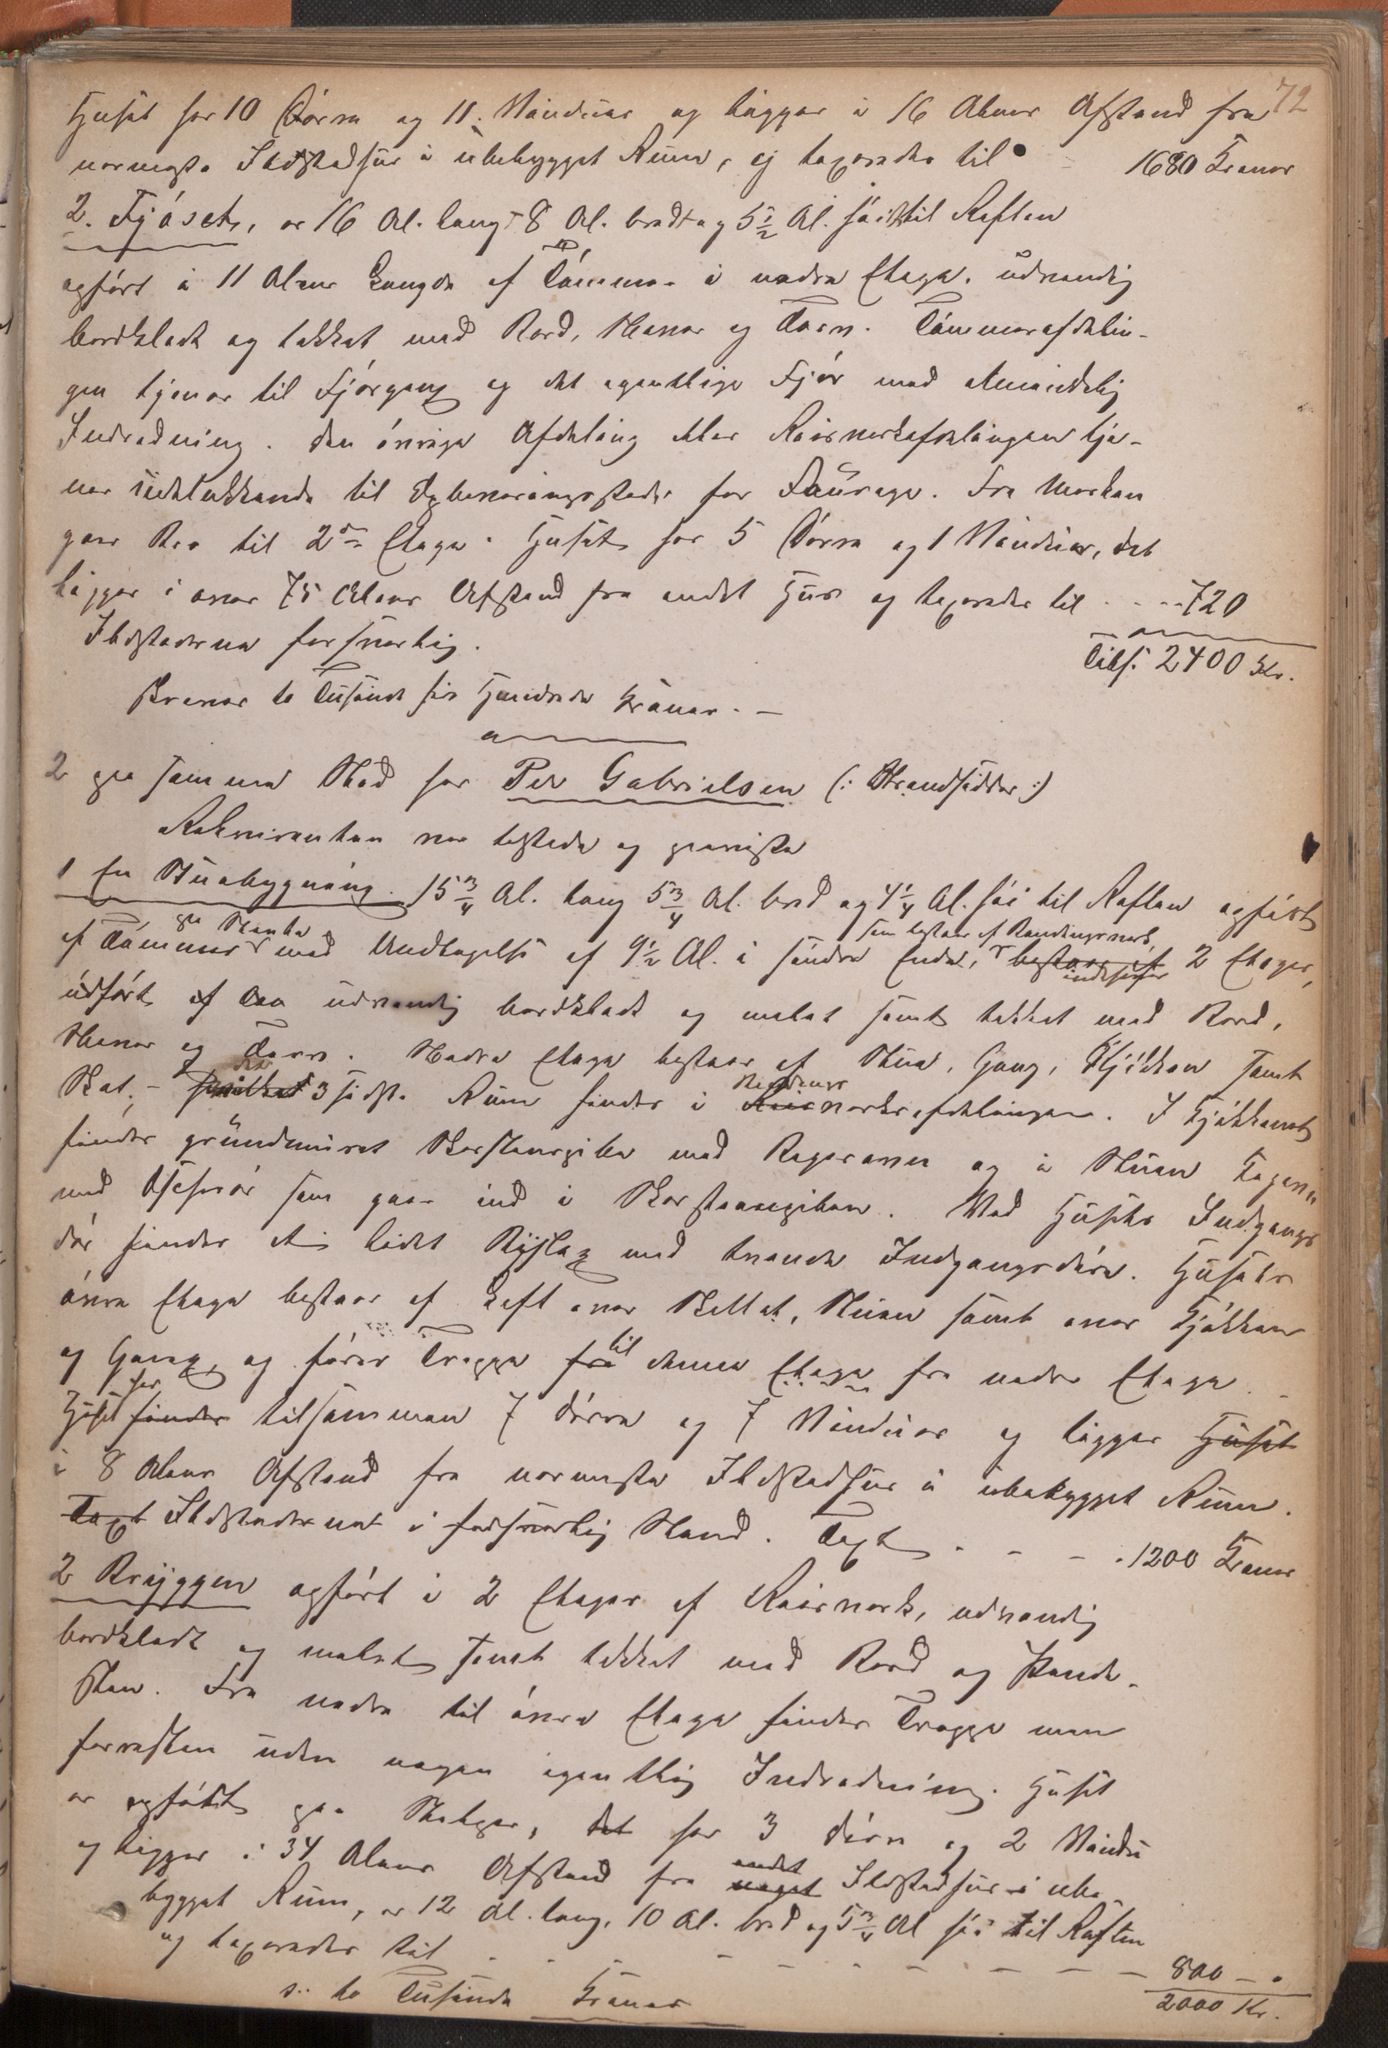 72
Huset har 10 Dörre og 11 Vinduer og ligger i 16 Alens Afstand fra
nærmeste Ildstedhus i ubebygget Rum, og taxeredes til 1680 Kroner
2. Fjöset, er 16 Al. langt 8 Al. bredt og 5 1/2 Al. höit til Raften
opfört i 11 Alens Længde af Tömmer i nedre Etage, udvendig
bordklædt og tækket med Bord, Næver og Törv. Tömmerafdelin-
gen tjener til Fjösgang og det egentlige Fjös med almindelig
Indredning. Den övrige Afdeling eller Reisverksafdelingen tje-
ner udelukkende til Opbevaringssted for Fourage. Fra Marken
gaar Bro til 2den Etage. Huset har 5 Dörre og 1 Vindue, det
ligger i over 75 Alens Afstand fra andet Hus og taxeredes til 720
Ildstederne forsvarlig.
Tils: 2400 Kr.
Skriver to Tusinde fire Hundrede Kroner. —
2 paa samme Sted for Peder Gabrielsen (: Strandsidder :)
Rekvirenten var tilstede og paaviste
1 En Stuebygning 15 3/4 Al. lang 5 3/4 Al. bred og 4 1/4 Al. höi til Raften opfört
paa Stenbro som bestaar af Bindingsverk
af Tömmer med Undtagelse af 9 1/2 Al. i söndre Ende, bestaar af 2 Etager,
indeholder
udfört af Træ udvendig bordklædt og malet samt tækket med Bord,
Næver og Törv. Nedre Etage bestaar af Stue, Gang, Kjökken samt
de Bindings
Skot. – hvilket 3 sidste Rum findes i Reisverksafdelingen. I Kjökkenet
findes grundmuret Skorstenspibe med Bagerovn og i Stuen Kagelovn
med Rör som gaar ind i Skorstenspiben. Ved Husets Indgangs
dör findes et lidet Bislag med tvende Indgangsdöre. Husets
övre Etage bestaar af Loft over Skottet, Stuen samt over Kjökken
til
og Gang, og förer Trappe fra denne Etage fra nedre Etage.
har
Huset findes tilsammen 7 Dörre og 7 Vinduer og ligger Huset
i 8 Alens Afstand fra nærmeste Ildstedhus i ubebygget Rum.
Taxt Ildstederne i forsvarlig Stand. Taxt 1200 Kroner
2 Bryggen opfört i 2 Etager af Reisverk, udvendig
bordklædt og malet samt tækket med Bord og Pande-
sten. Fra nedre til övre Etage findes Trappe men
forresten uden nogen egentlig Indredning. Huset
er opfört paa Stolper, det har 3 Döre og 2 Vindu
andet
og ligger i 34 Alens Afstand fra noget Ildstedhus i ube-
bygget Rum, er 12 Al. lang, 10 Al. bred og 5 3/4 Al höi til Raften
og taxeredes til 800 —
s: to Tusinde Kroner 2000 Kr.